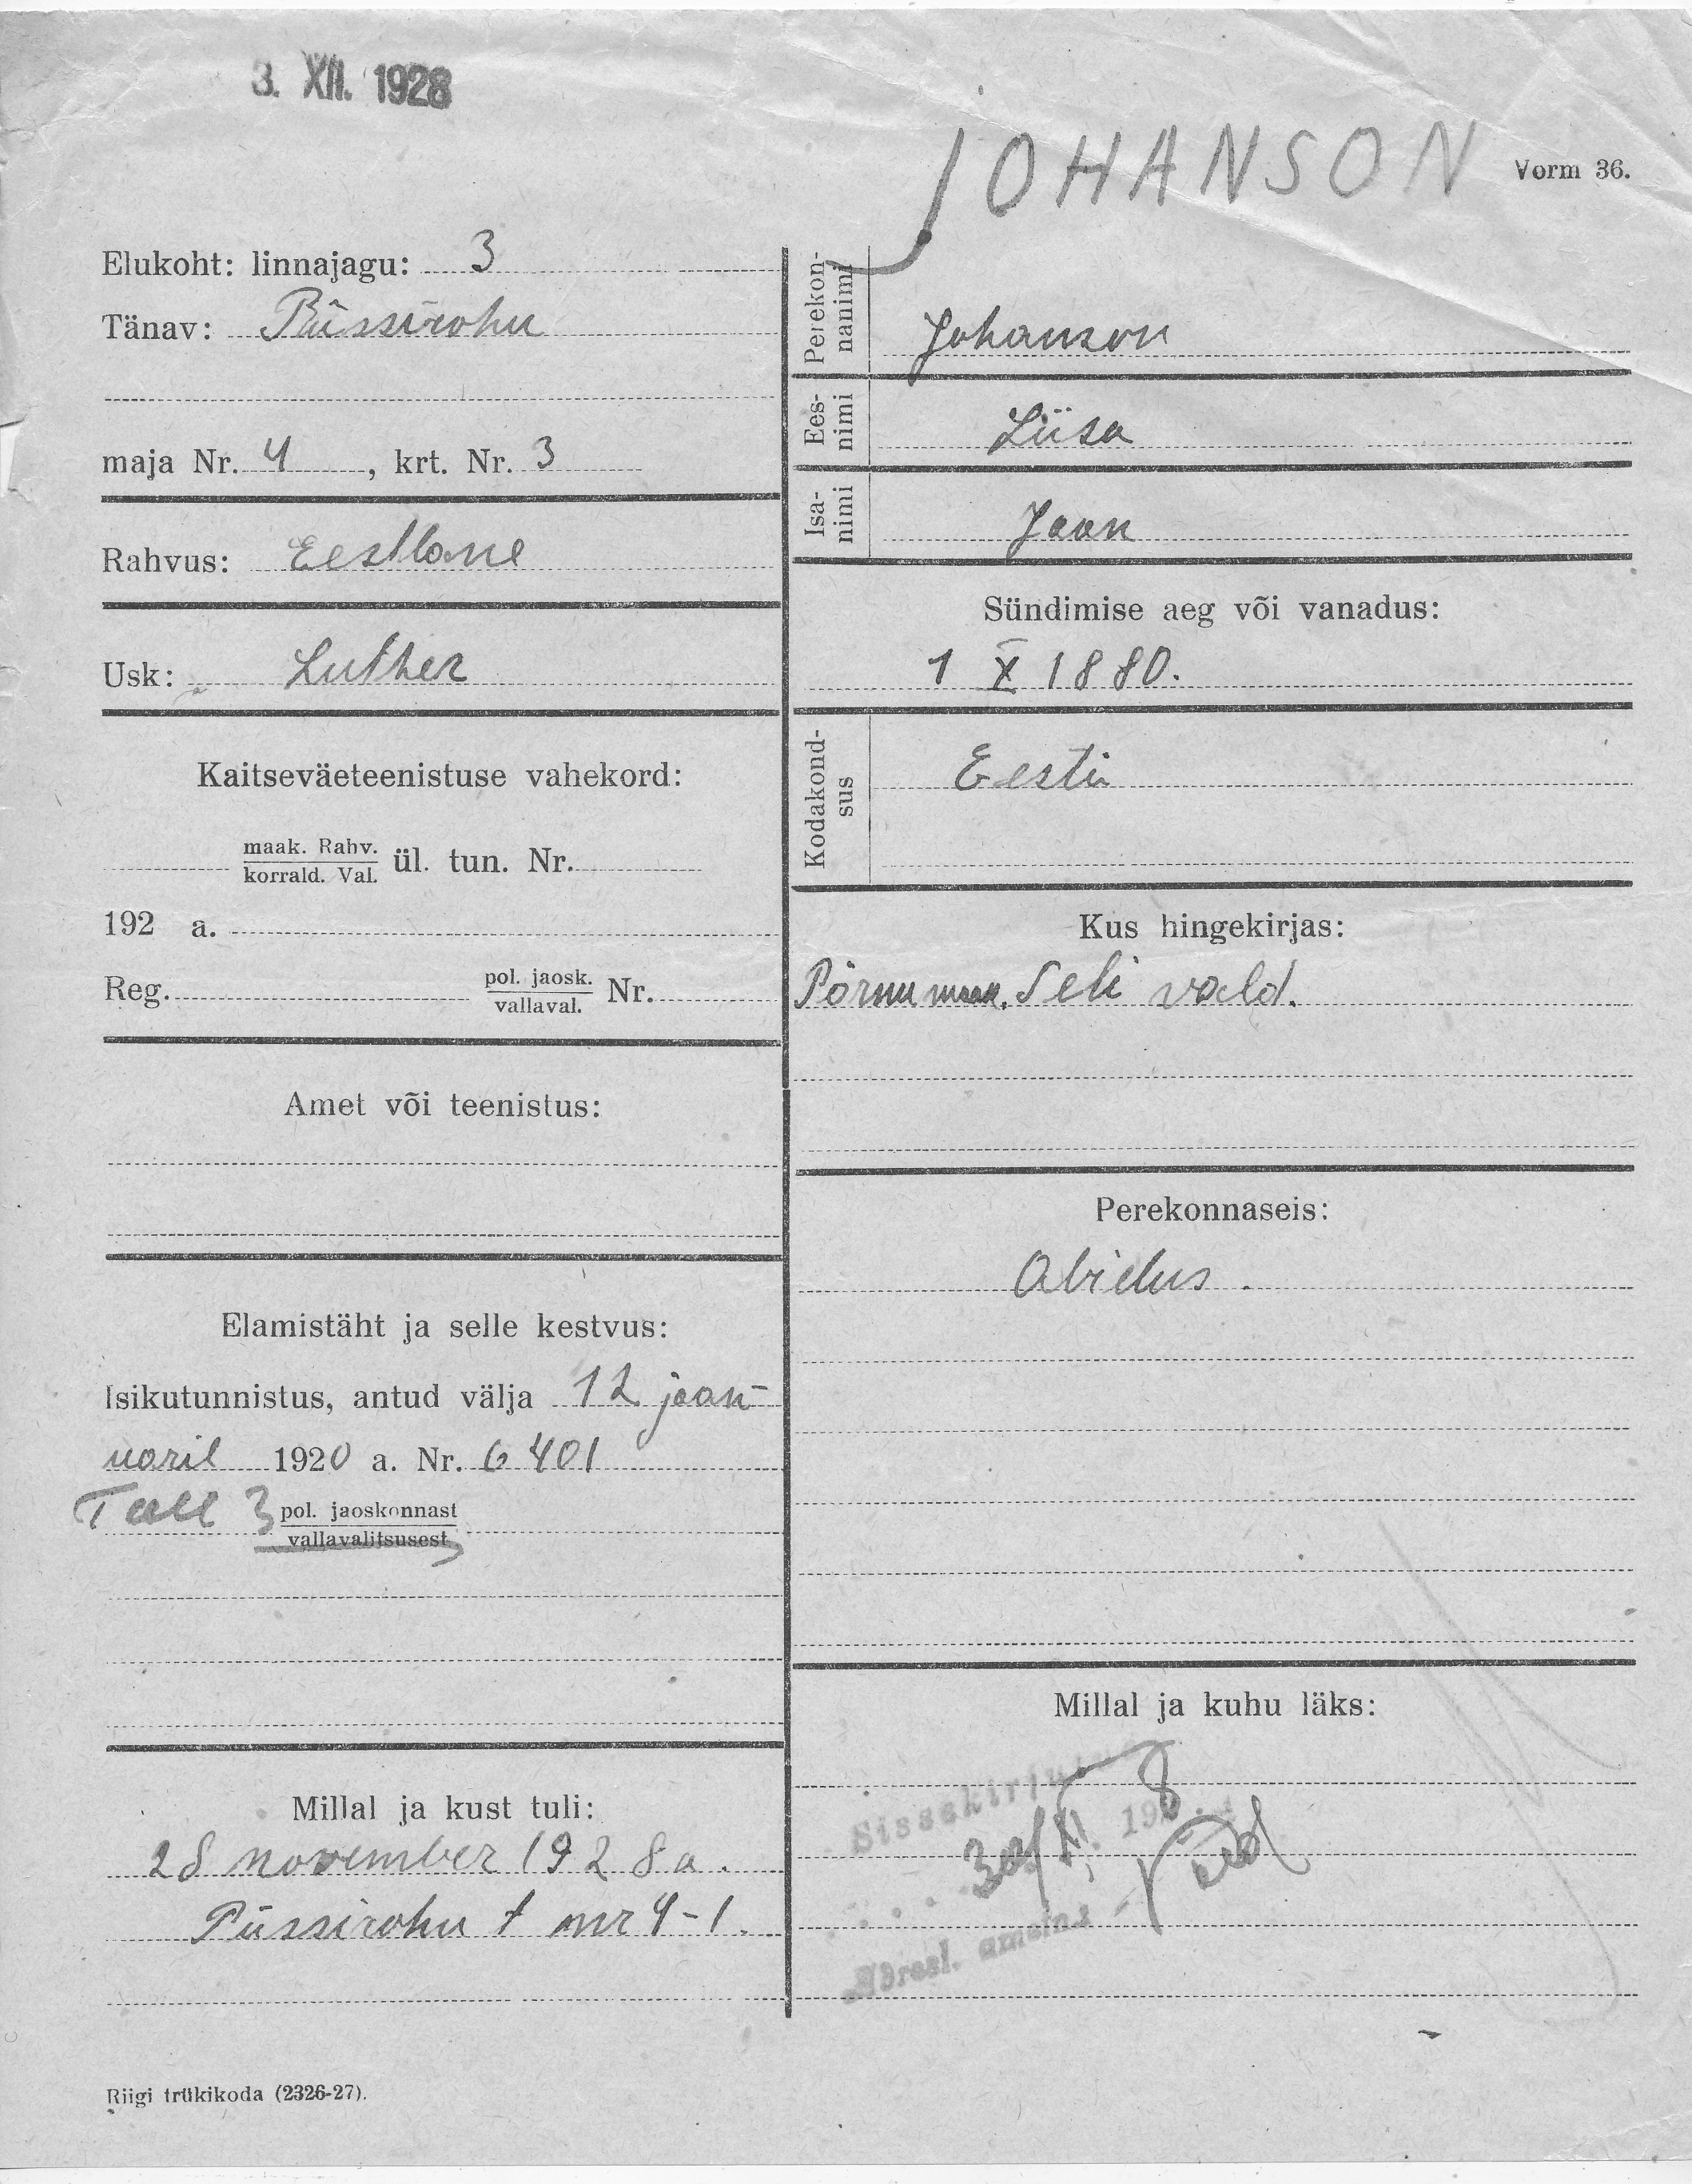 3. XII. 1928
JOHANSON
Vorm 36.
Elukoht: linnajagu: 3
Tänav: Püssirohu
maja Nr. 4, krt. Nr. 3
Rahvus: Eestlane
Usk: Luther
Kaitseväeteenistuse vahekord:
maak. Rahv.
korrald. Val. ül. tun. Nr.
192 a.
Reg. pol. jaosk.
vallaval. Nr.
Amet või teenistus:
Elamistäht ja selle kestvus:
Isikutunnistus, antud välja 12 jaan-
uaril 1920 a. Nr. 6401
Tall 3 pol. jaoskonnast
vallavalitsusest
Millal ja kust tuli:
28 november 1928 a.
Püssirohu t nr 4-1.
Riigi trükikoda (2326-27).
Perekon-
nanimi Johanson
Ees-
nimi Liisa
Isa-
nimi Jaan
Sündimise aeg või vanadus:
1 X 1880.
Kodakond-
sus Eesti
Kus hingekirjas:
Pärnu maak. Seli vald.
Perekonnaseis:
Abielus.
Millal ja kuhu läks:
Sissekirjut
30/XI 192 8